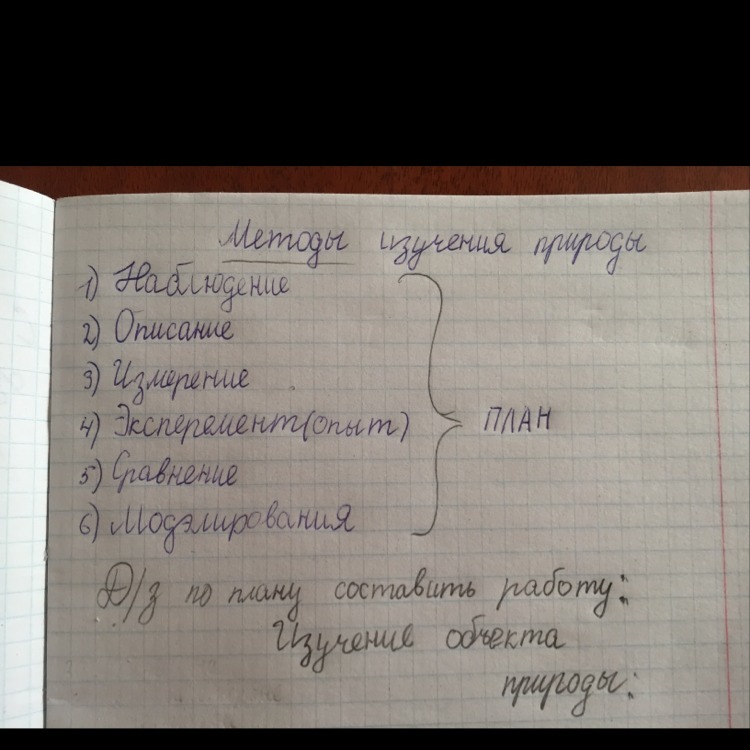 Методы изучения природы
1) Наблюдение
2) Описание
3) Измерение
4) Эксперемент(опыт)
5) Сравнение
6) Модэлирования
ПЛАН
Д/з по плану составить работу:
Изучение объекта
природы: